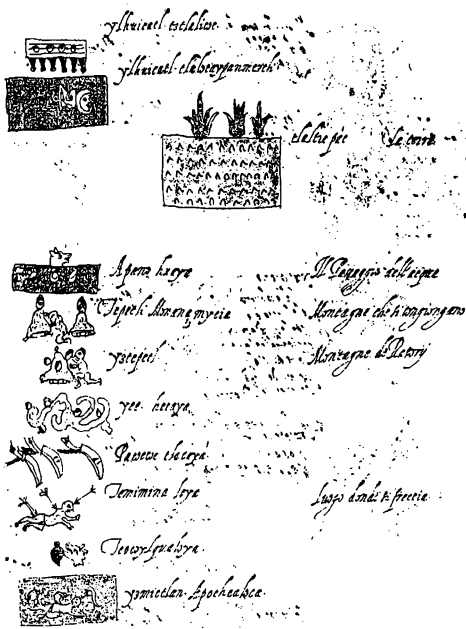 ylhuicatl
ylhuicatl tlalocaypanmeztli
tlalticpac la terra
Apano huaya Il Passaggio dell'acque
Tepetl Monanamycia Montagne che si congiongano
yztepetl Montagne di Rasorj
yee hecaya
Pacoecoe tlacaya
Temimina loya Luogo dove si freccia
Teocoylqualoya
yzmictlan Apochcaloca